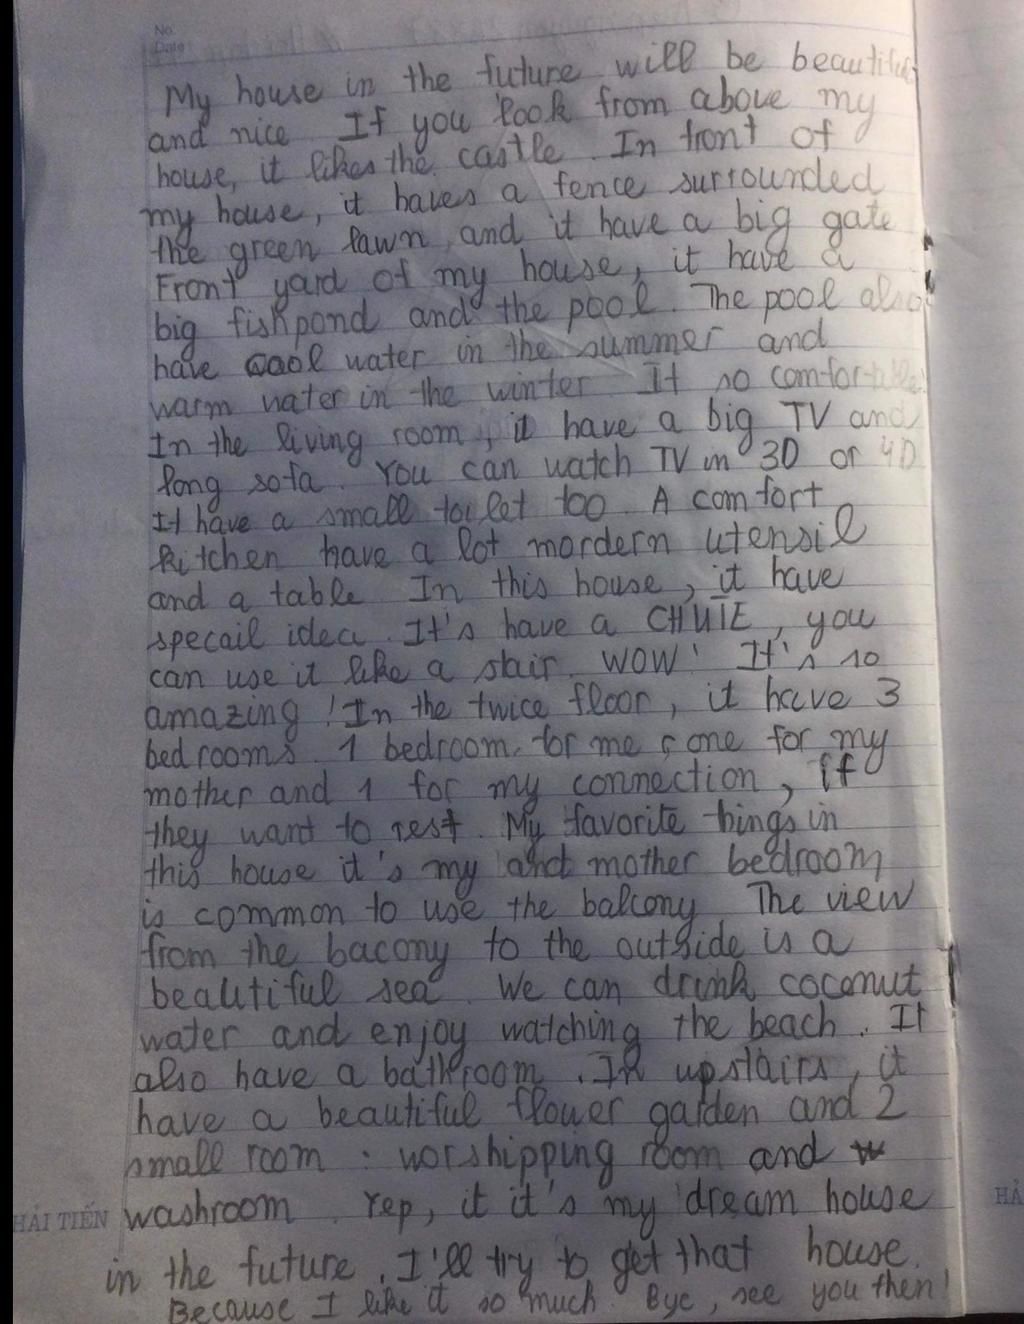 No.
Date
My house in the future will be beautiful
and nice If you look from above my
house, it likes the castle. In front of
my house, it haves a fence surrounded
the green lawn, and it have a big gate
Front yard of my house, it have a
big fishpond and the pool. The pool also
have cool water in the summer and
warm water in the winter It so comfortable!
In the living room, it have a big TV and
long sofa. You can watch TV in 3D or 4D
It have a small toilet too. A comfort
kitchen have a lot mordern utensil
and a table In this house, it have
specail idea. It's have a CHUTE, you
can use it like a stair. WOW! It's so
amazing! In the twice floor, it have 3
bedrooms. 1 bedroom for me, one for my
mother and 1 for my connection, if
they want to rest. My favorite things in
this house it's my and mother bedroom
is common to use the balcony. The view
from the bacony to the outside is a
beautiful sea. We can drink coconut
water and enjoy watching the beach. It
also have a bathroom. In upstairs, it
have a beautiful flower garden and 2
small room : worshipping room and
HẢI TIẾN washroom. Yep, it it's my dream house
in the future. I'll try to get that house.
Because I like it so much. Bye, see you then!
HẢ